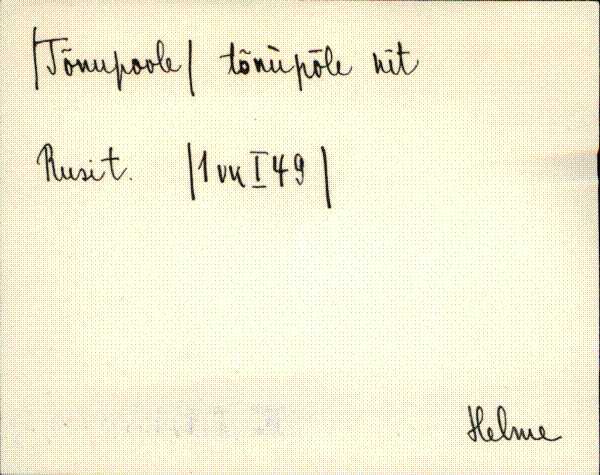 |Tõnupoole| tõnupōle nīt
Rusit. |1 vk I 49|
Helme